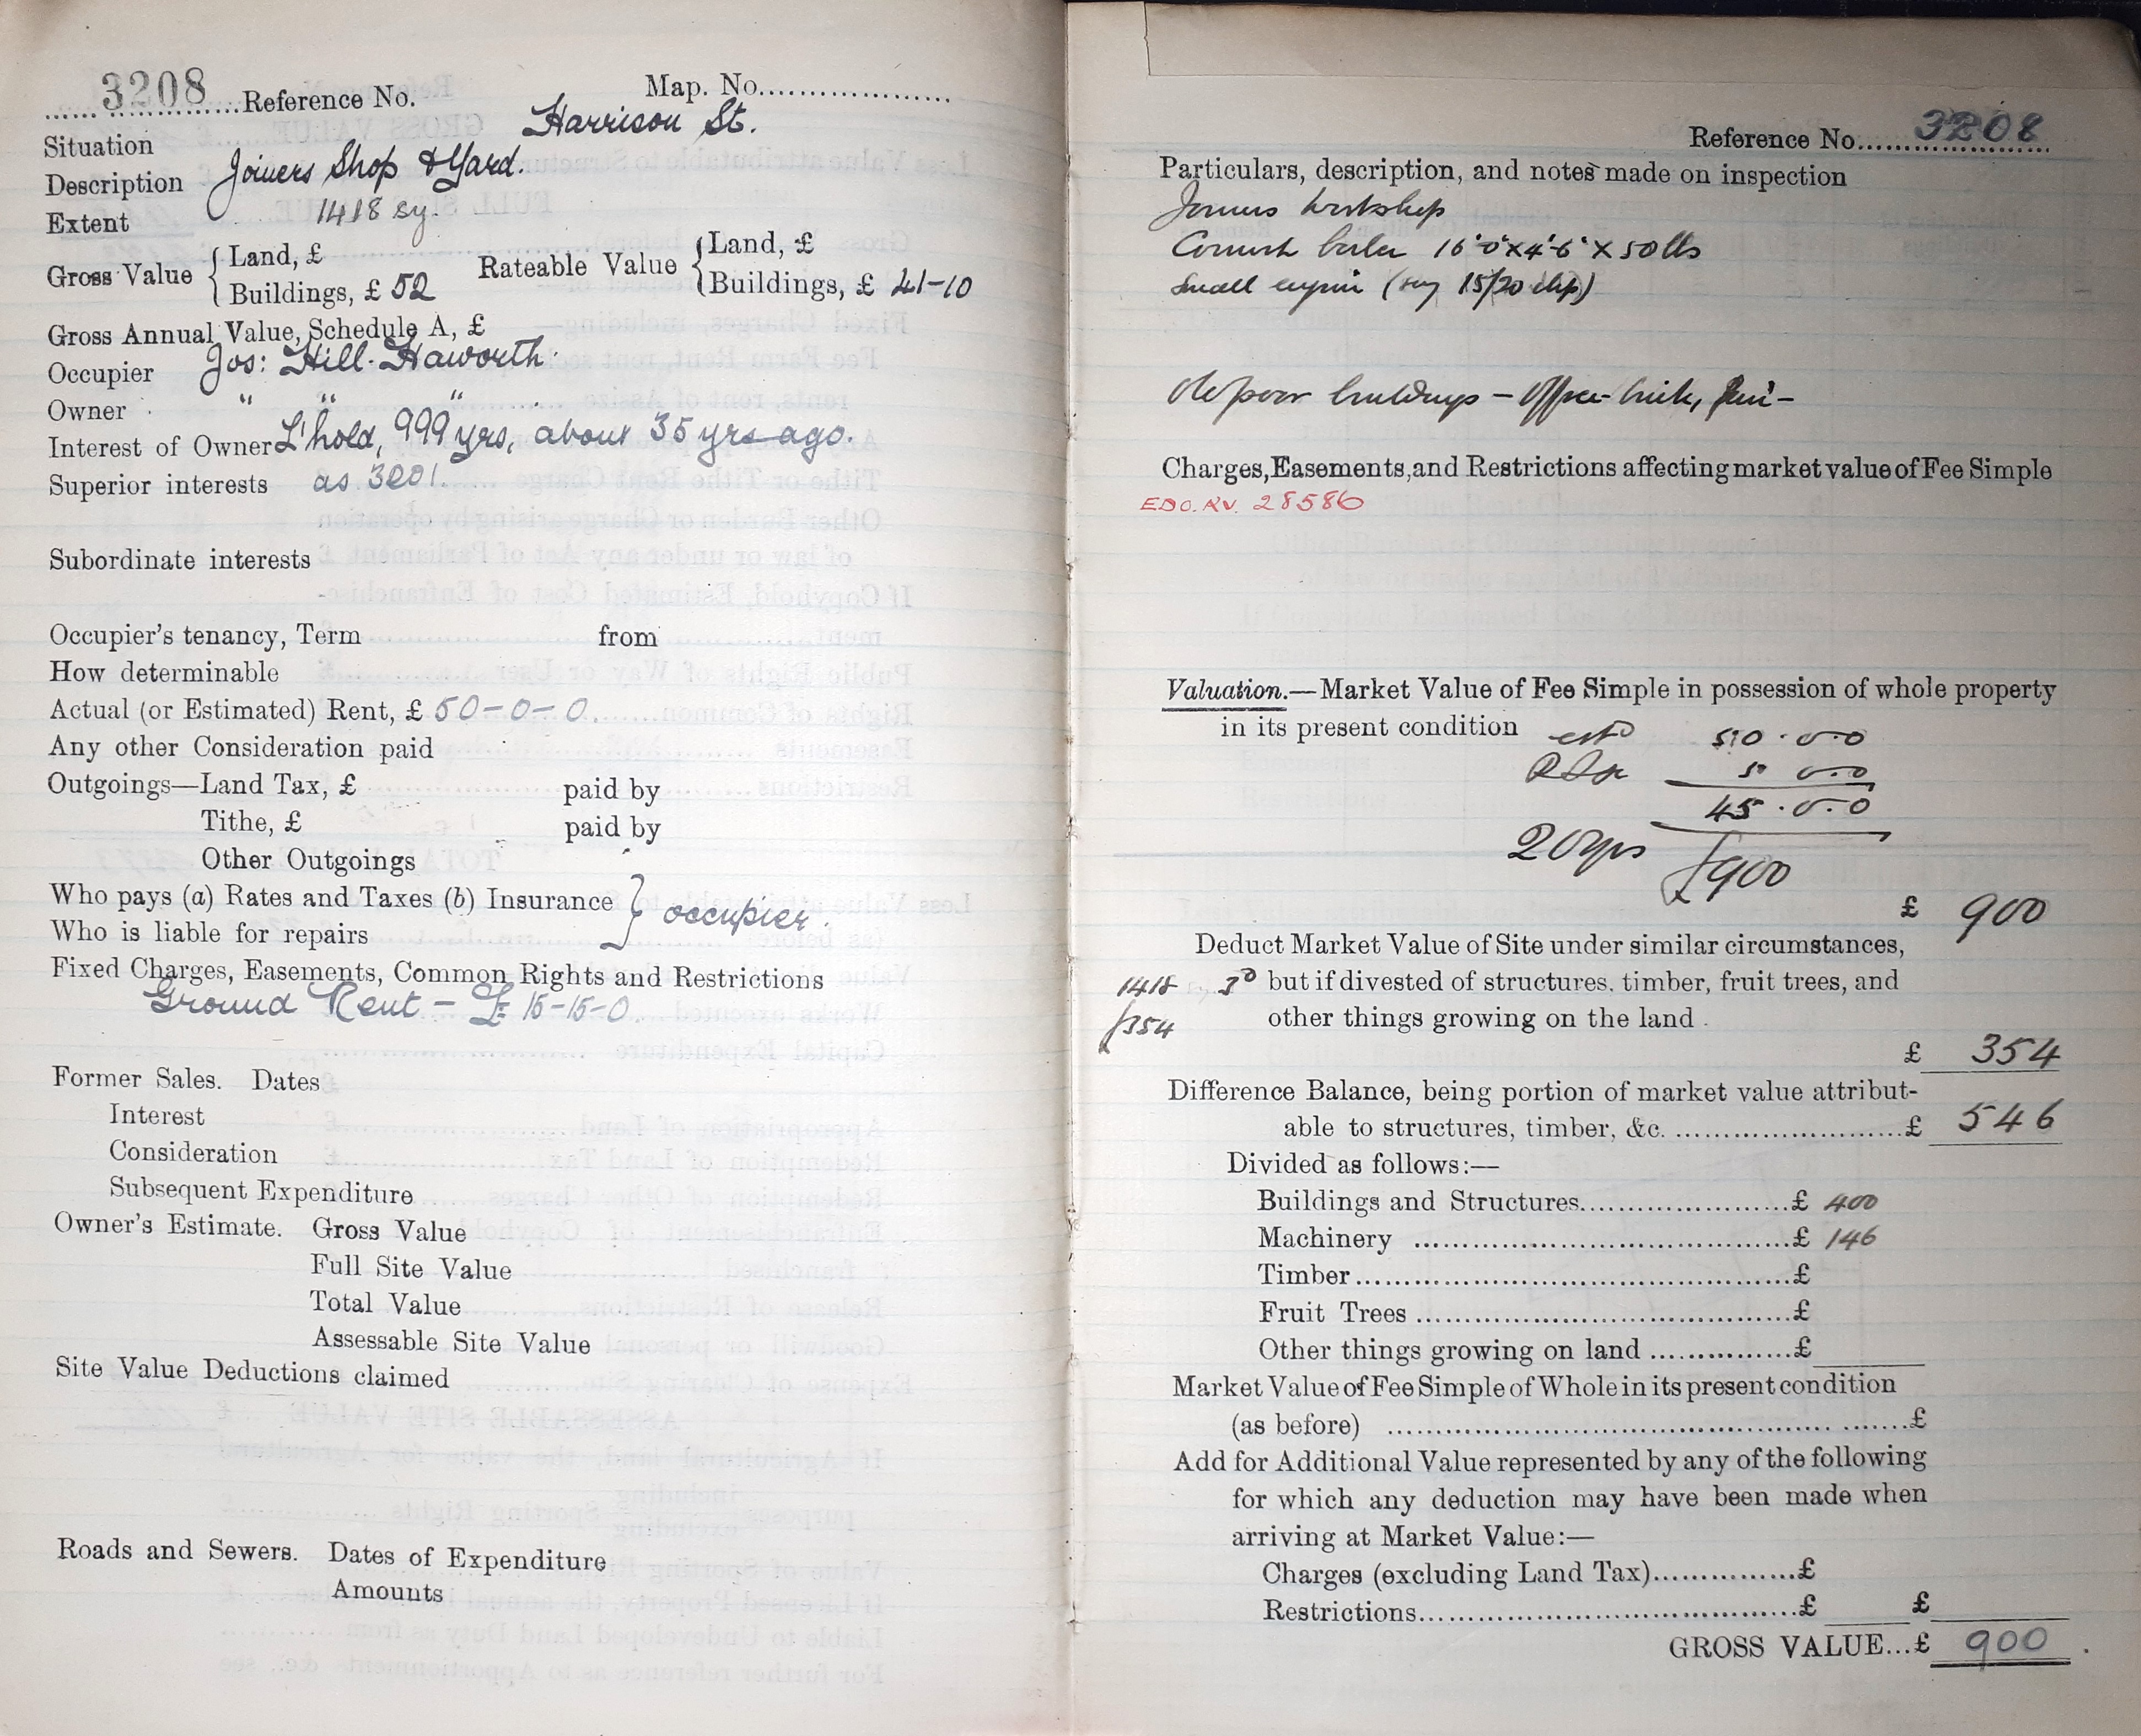 3208 Reference No. Map. No.
Situation Harrison St.
Description Joiners Shop & Yard.
Extent 1418 sy.
Gross Value { Land, £ Rateable Value { Land, £
Buildings, £ 52 Buildings, £ 41-10
Gross Annual Value, Schedule A, £
Occupier Jos: Hill-Haworth.
Owner " " "
Interest of Owner L'hold, 999 yrs, about 35 yrs ago.
Superior interests as 3201.
Subordinate interests
Occupier's tenancy, Term from
How determinable
Actual (or Estimated) Rent, £ 50-0-0.
Any other Consideration paid
Outgoings—Land Tax, £ paid by
Tithe, £ paid by
Other Outgoings
Who pays (a) Rates and Taxes (b) Insurance } occupier.
Who is liable for repairs
Fixed Charges, Easements, Common Rights and Restrictions
Ground Rent - £ 15-15-0.
Former Sales. Dates
Interest
Consideration
Subsequent Expenditure
Owner's Estimate. Gross Value
Full Site Value
Total Value
Assessable Site Value
Site Value Deductions claimed
Roads and Sewers. Dates of Expenditure
Amounts
Reference No. 3208
Particulars, description, and notes made on inspection
Joiners Workshop
Cornish boiler 16'-0" x 4'-6" x 50 lbs
Small engine (say 15/20 ihp)
Old poor buildings - Office brick, fair -
Charges, Easements, and Restrictions affecting market value of Fee Simple
EDO. RV. 28586
Valuation.—Market Value of Fee Simple in possession of whole property
in its present condition
estd 50.0.0
5 0.0
45.0.0
20 yrs £900
£ 900
Deduct Market Value of Site under similar circumstances,
1418 but if divested of structures. timber, fruit trees, and
£354 other things growing on the land
£ 354
Difference Balance, being portion of market value attribut-
able to structures, timber, &c. £ 546
Divided as follows:—
Buildings and Structures £ 400
Machinery £ 146
Timber £
Fruit Trees £
Other things growing on land £
Market Value of Fee Simple of Whole in its present condition
(as before) £
Add for Additional Value represented by any of the following
for which any deduction may have been made when
arriving at Market Value:—
Charges (excluding Land Tax) £
Restrictions £ £
GROSS VALUE...£ 900